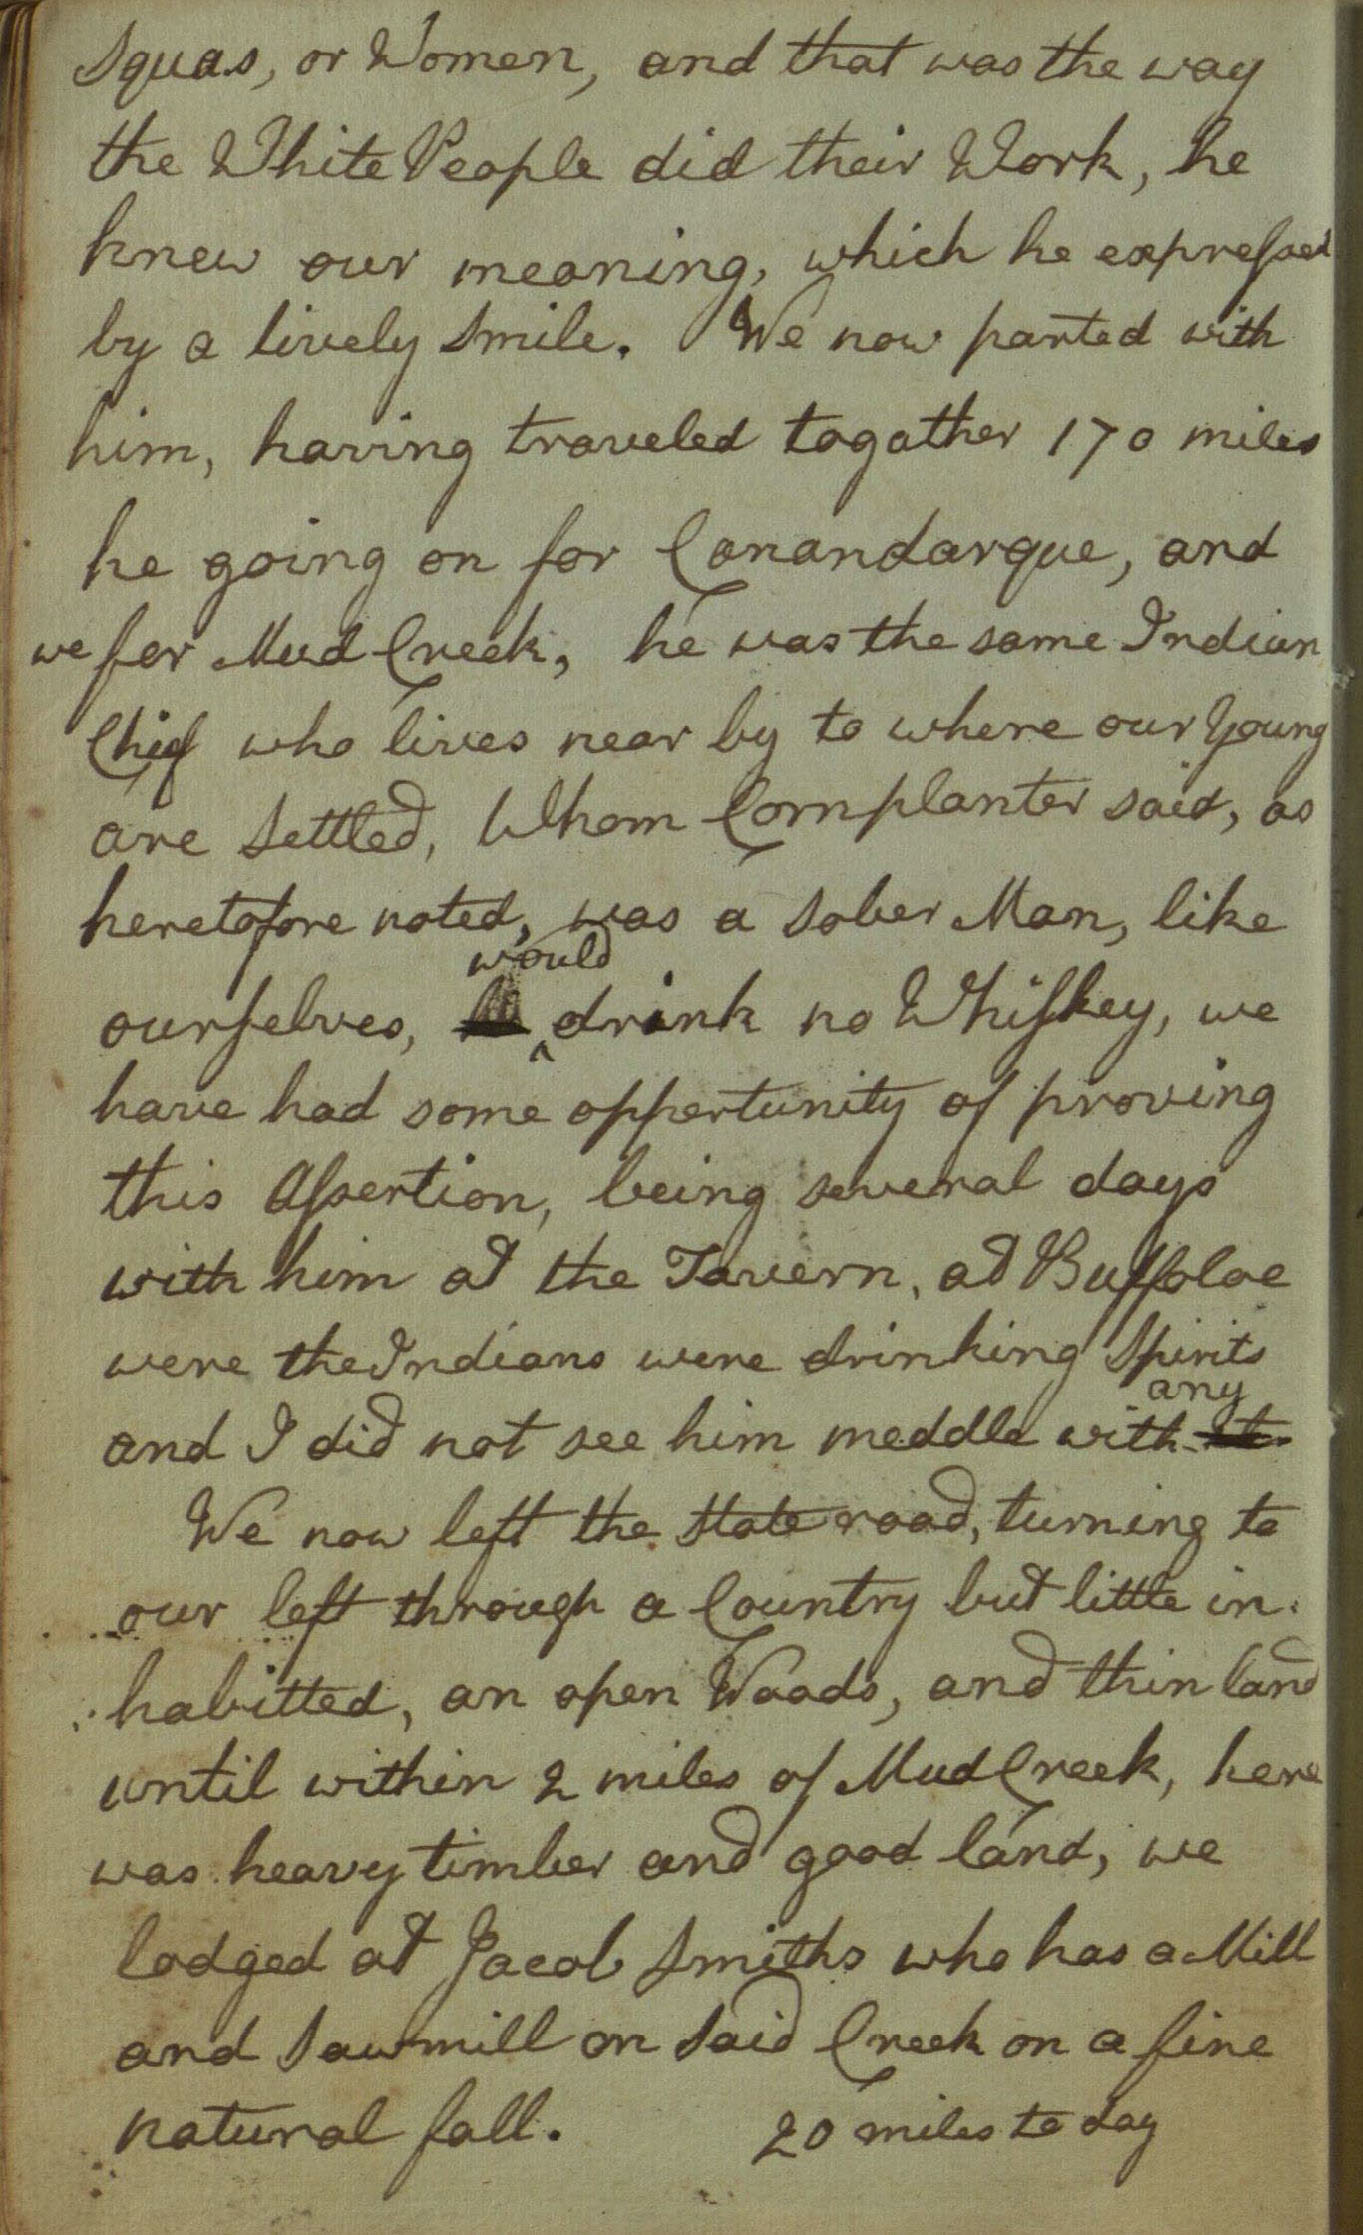 Squas, or Women, and that was the way
the White People did their Work, he
knew our meaning, which he expressed
by a lively Smile. We now parted with
him, having traveled togather 170 miles
he going on for Canandarque, and
we for Mud Creek, he was the same Indian
Chief who lives near by to where our Young
are Settled, Whom Cornplanter said, as
heretofore noted, was a Sober Man, like
would
ourselves, drink no Whiskey, we
have had some oppertunity of proving
this Assertion, being several days
with him at the Tavern, at Buffaloe
were the Indians were drinking Spirits
any
and I did not see him meddle with it
We now left the State road, turning to
our left through a Country but little in
habitted, an open Woods, and thin land
until within 2 miles of Mud Creek, here
was heavy timber and good land, we
lodged at Jacob Smiths who has a Mill
and Sawmill on Said Creek on a fine
natural fall. 20 miles to day